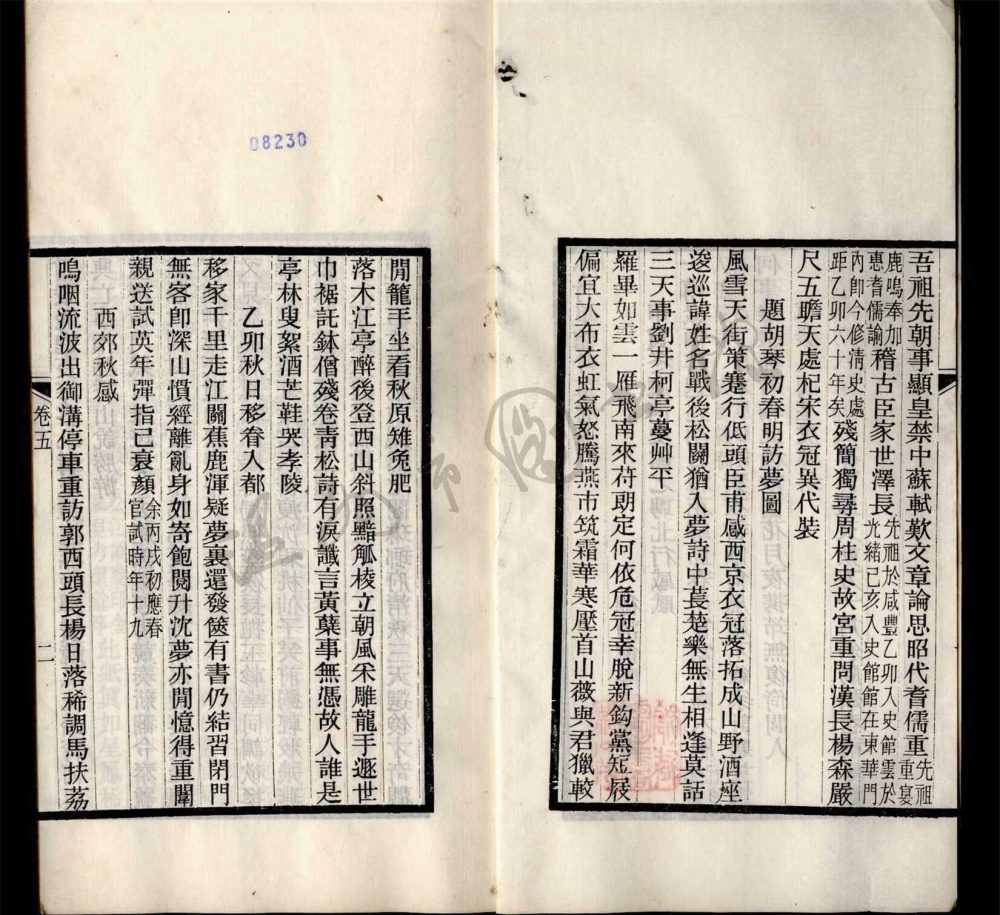 吾祖先朝事顯皇禁中蘇軾歎文章論思昭代耆儒重先祖重宴
鹿鳴奉加
惠耆儒諭稽古臣家世澤長先祖於咸豐乙卯入史館雲於光緒己亥入史館館在東華門
內卽今修清史處
距乙卯六十年矣殘簡獨尋周柱史故宮重問漢長楊森嚴
尺五瞻天處杞宋衣冠異代裝
題胡琴初春明訪夢圖
風雪天街策蹇行低頭臣甫感西京衣冠落拓成山野酒座
逡巡諱姓名戰後松關猶入夢詩中萇楚樂無生相逢莫話
三天事劉井柯亭蔓艸平
羅畢如雲一雁飛南來苻朗定何依危冠幸脫新鈎黨短屐
偏宜大布衣虹氣怒騰燕市筑霜華寒壓首山薇與君獵較
閒籠手坐看秋原雉兔肥
落木江亭醉後登西山斜照黯觚棱立朝風采雕龍手遯世
巾裾託鉢僧殘卷靑松詩有淚讖言黃蘗事無憑故人誰是
亭林叟絮酒芒鞋哭孝陵
乙卯秋日移眷入都
移家千里走江關蕉鹿渾疑夢裏還發篋有書仍結習閉門
無客卽深山慣經離亂身如寄飽閱升沈夢亦閒憶得重闈
親送試英年彈指已衰顏余丙戌初應春官試時年十九
西郊秋感
嗚咽流波出御溝停車重訪郭西頭長楊日落稀調馬扶荔
卷五
二
08230